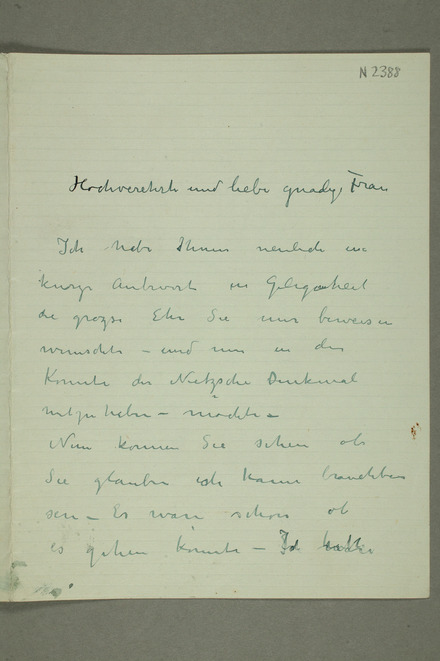 N 2388
Hochverehrte und liebe gnädige Frau
Ich habe Ihnen neulich
kurze Antwort in Gelegenheit
die grosse Ehre Sie mir beweisen
wünschte – und mir in das
Komite des Nietzsche Denkmal
– möchte –
Nun können Sie sehen ob
Sie glauben ich kann
sein – Es wäre schön ob
es gehen könnte – Ich